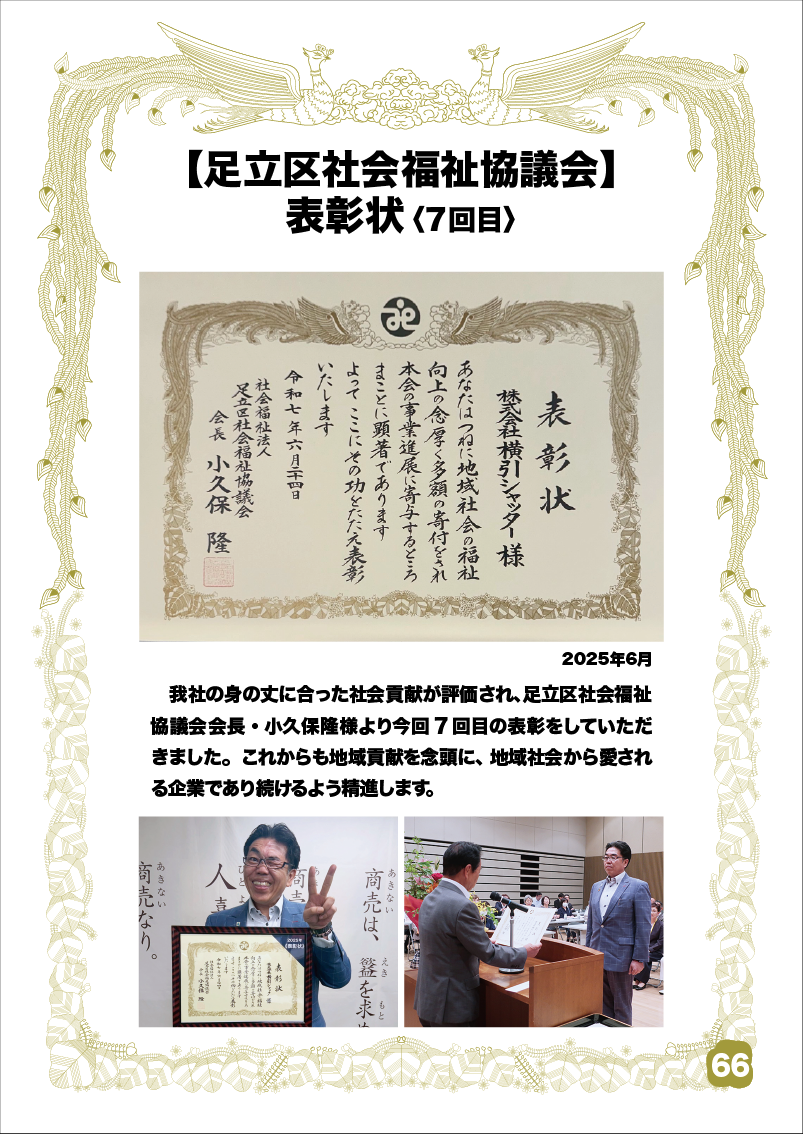 【足立区社会福祉協議会】
表彰状〈7回目〉
表彰状
株式会社横引シャッター 様
あなたはつねに地域社会の福祉
向上の念厚く多額の寄付をされ
本会の事業進展に寄与するところ
まことに顕著であります
よってここにその功をたたえ表彰
いたします
令和七年六月二十四日
社会福祉法人
足立区社会福祉協議会
会長 小久保 隆
2025年6月
我社の身の丈に合った社会貢献が評価され、足立区社会福祉
協議会会長・小久保隆様より今回7回目の表彰をしていただ
きました。これからも地域貢献を念頭に、地域社会から愛され
る企業であり続けるよう精進します。
商売は、
あきない
簦を求め
えき もと
人
商売なり。
あきない
2025年
《表彰状》
表彰状
66